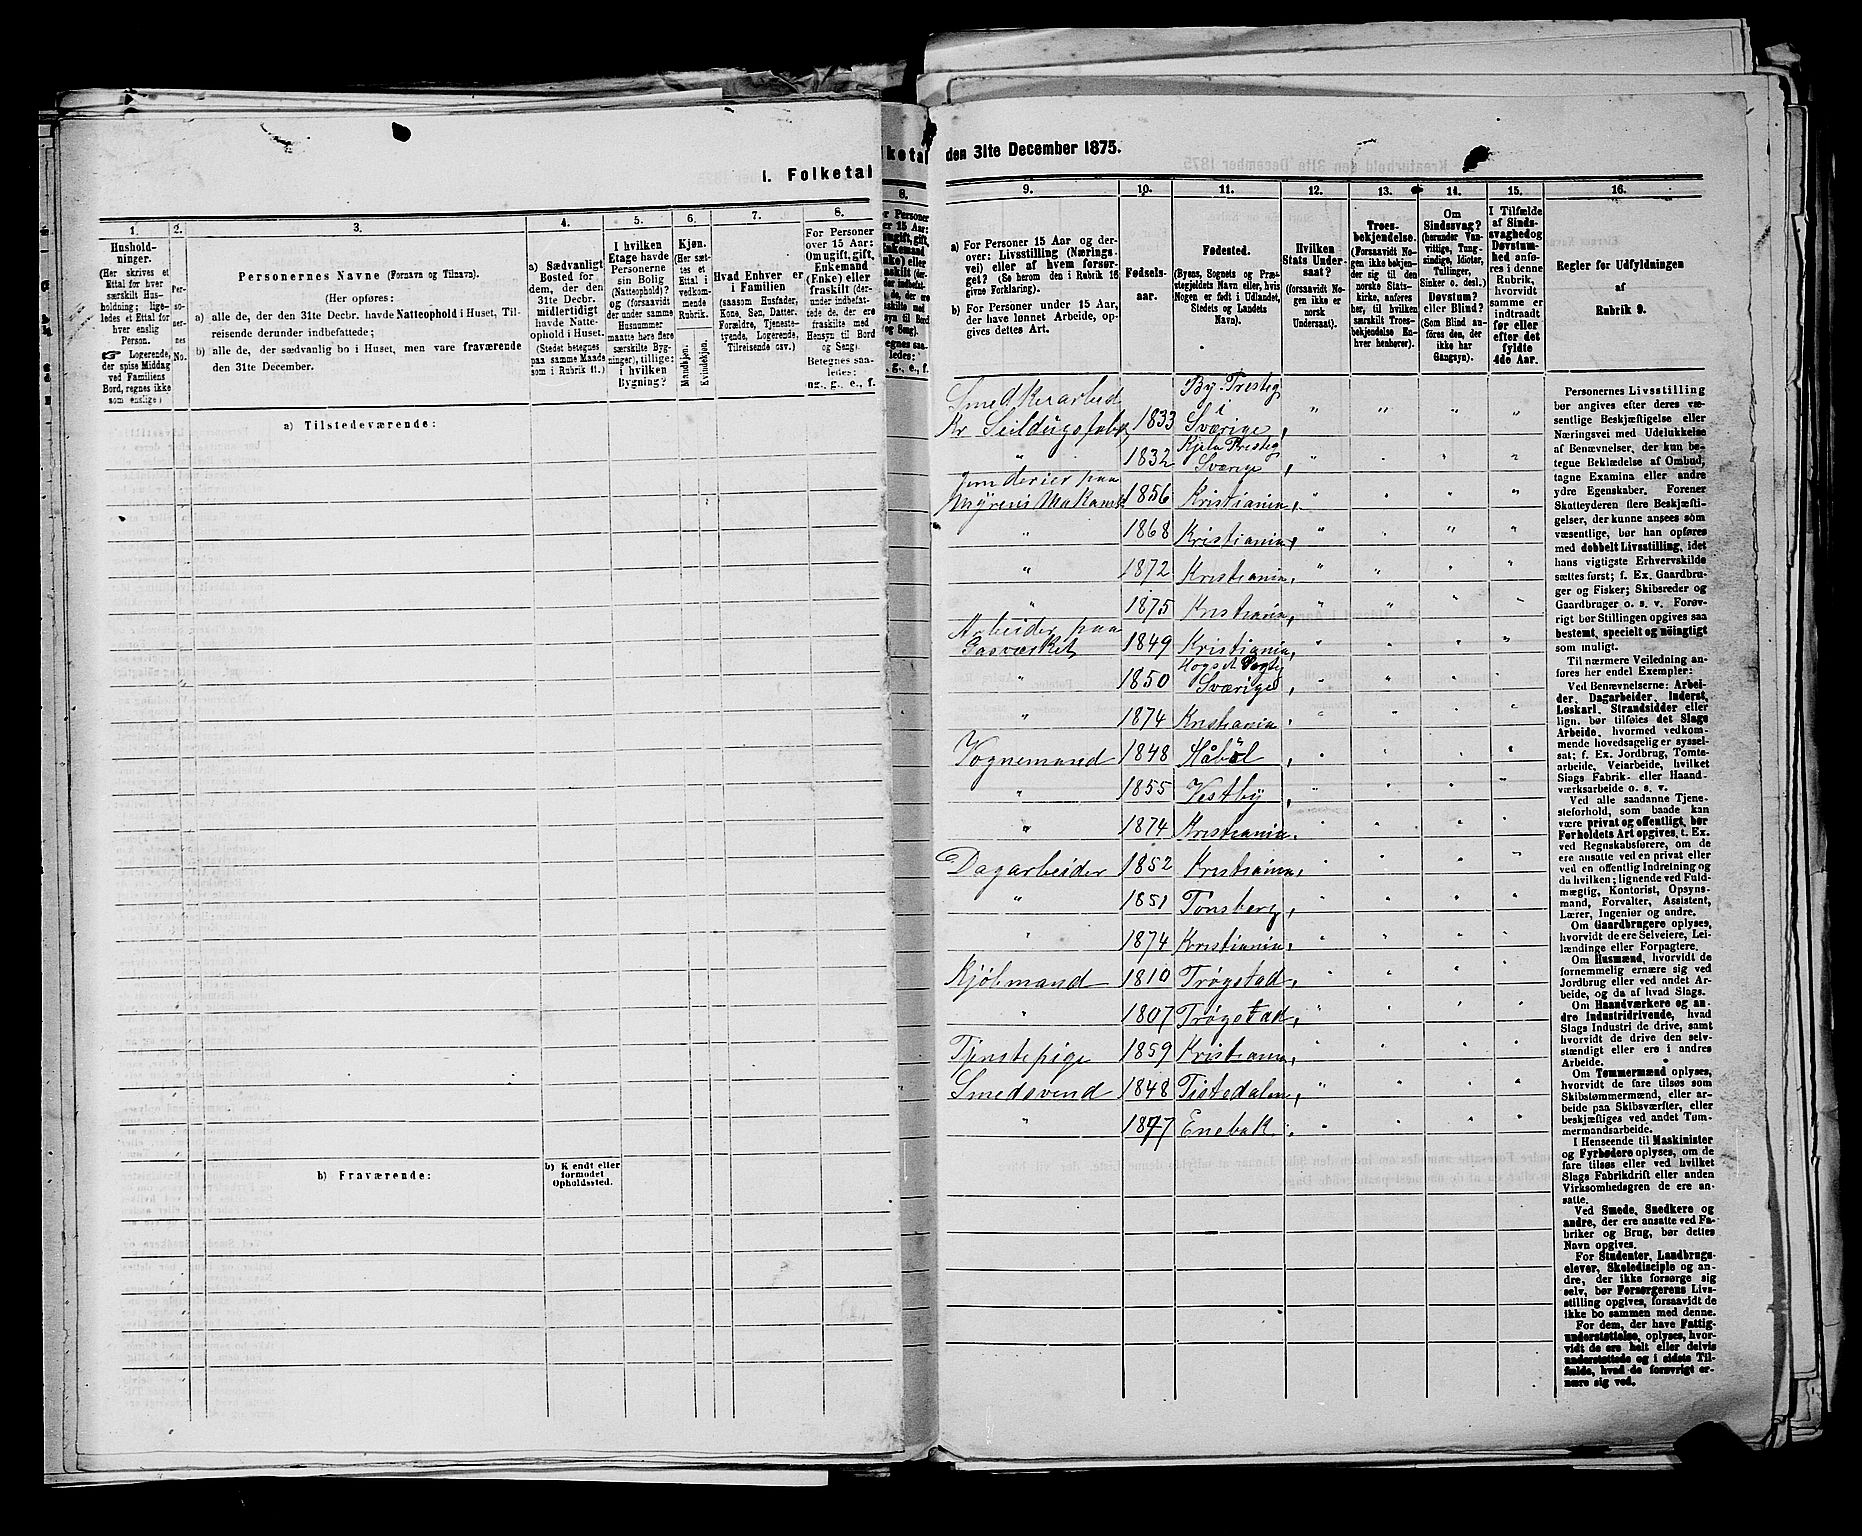 I. Folketal
1.
2.
3.
4.
5.
6.
7.
8.
Hushold-
ninger.
(Her skrives et
Ettal for hver
særskilt Hus-
holdning; lige-
ledes et Ettal
for hver
enslig
Person.
☞ Logerende,
der spise Middag
ved Familiens
Bord, regnes ikke
som enslige.)
Personernes Navne (Fornavn og Tilnavn).
(Her opføres:
a) alle de, der den 31te Decbr. havde Natteophold i Huset, Til-
reisende derunder indbefattede;
b) alle de, der sædvanlig bo i Huset, men vare fraværende
den 31te December.
a) Sædvanligt
Bosted for
dem, der den
31te Decbr.
midlertidigt
havde Natte-
ophold i Huset.
(Stedet betegnes
paa samme Maade
som i Rubrik 11.)
I hvilken
Etage havde
Personerne
sin Bolig
(Natteophold)?
og (forsaavidt
der under samme
Husnummer
maatte høre flere
særskilte Byg-
ninger), tillige:
i hvilken
Bygning?
Kjøn.
(Her sæt-
tes et
Ettal i
vedkom-
mende
Rubrik.
Mandkjøn.
Kvindekjøn.
Hvad Enhver er
i Familien
(saasom Husfader,
Kone, Søn, Datter,
Forældre, Tjeneste-
tyende, Logerende,
Tilreisende osv.)
For Personer
over 15 Aar:
Om ugift, gift,
Enkemand
(Enke) eller
fraskilt (der-
under indbefat-
tede de, der ere
fraskilte med
Hensyn til Bord
og Seng).
Betegnes saa-
ledes:
ug., g., e., f.
a) Tilstedeværende:
b) Fraværende:
b) Kjendt eller
formodet
Opholdssted.
den 31te December 1875.
9.
10.
11.
12.
13.
14.
15.
16.
a) For Personer 15 Aar og der-
over: Livsstilling (Nærings-
vei) eller af hvem forsør-
get? (Se herom den i Rubrik 16
givne Forklaring).
b) For Personer under 15 Aar,
der have lønnet Arbeide, op-
gives dettes Art.
Fødsels-
aar.
Fødested.
(Byens, Sognets og Præ-
stegjeldets Navn eller, hvis
Nogen er født i Udlandet,
Stedets og Landets
Navn).
Hvilken
Stats Under-
saat?
(forsaavidt No-
gen ikke er
norsk
Undersaat).
Troes-
bekjendelse.
(Forsaavidt No-
gen ikke bekjen-
der sig til den
norske Stats-
kirke, anføres
her, til hvilken
særskilt Troes-
bekjendelse En-
hver henhører).
Om
Sindssvag?
(herunder Van-
vittige, Tung-
sindige, Idioter,
Tullinger,
Sinker o. desl.)
Døvstum?
eller Blind?
(Som Blind an-
føres den, der
ikke har
Gangsyn).
I Tilfælde
af Sinds-
svaghed og
Døvstum-
hed anfø-
res i denne
Rubrik,
hvorvidt
samme er
indtraadt
før eller
efter det
fyldte
4de Aar.
Regler for Udfyldningen
af
Rubrik 9.
Smedkerarbeid By. Prestig
Kr Seildugsfabr 1833 i Sværige
" 1832 Prestig Sværige
paa
1856 Kristiania
" 1868 Kristiania
" 1872 Kristiania
" 1875 Kristiania
Arbeider paa
Gasværket 1849 Kristiania
" 1850 Sværige
" 1874 Kristiania
Vognemand 1848 Håböl
" 1855 Vestby
" 1874 Kristiania
Dagarbeider 1852 Kristiania
" 1851 Tönsberg
" 1874 Kristiania
Kjöbmand 1810 Trøgstad
" 1807 Trøgstad
Tjenstepige 1859 Kristiania
Smedsvend 1848 Tistedalen
" 1847 Enebak
Personernes Livsstilling
bør angives efter deres væ-
sentlige Beskjæftigelse eller
Næringsvei med Udelukkelse
af Benævnelser, der kun be-
tegne Beklædelse af Ombud,
tagne Examina eller andre
ydre Egenskaber. Forener
Skatteyderen flere Beskjæfti-
gelser, der kunne ansees som
væsentlige, bør han opføres
med dobbelt Livsstilling, idet
hans vigtigste Erhvervskilde
sættes først; f. Ex. Gaardbru-
ger og Fisker; Skibsreder og
Gaardbruger o. s. v. Forøv-
rigt bør Stillingen opgives saa
bestemt, specielt og nöingtigt
som muligt.
Til nærmere Veiledning an-
føres her endel Exempler:
Ved Benævnelserne: Arbei-
der, Dagarbeider, Inderst,
Løskarl, Strandsidder eller
lign. bør tilføies det Slags
Arbeide, hvormed vedkom-
mende hovedsagelig er syssel-
sat; f. Ex. Jordbrug, Tomte-
arbeide, Veiarbeide, hvilket
Slags Fabrik- eller Haand-
værksarbeide o. s. v.
Ved alle saadanne Tjene-
steforhold, som baade kan
være privat og offentligt, bør
Forholdets Art opgives, t. Ex.
ved Regnskabsførere, om de
ere ansatte ved en privat eller
ved en offentlig Indretning og
da hvilken; lignende ved Fuld-
mægtig, Kontorist, Opsyns-
mand, Forvalter, Assistent,
Lærer, Ingeniør og andre.
Om Gaardbrugere oplyses,
hvorvidt de ere Selveiere, Lei-
lændinge eller Forpagtere.
Om Husmænd, hvorvidt de
fornemmelig ernære sig ved
Jordbrug eller ved andet Ar-
beide, og da af hvad Slags.
Om Haandværkere og an-
dre Industridrivende, hvad
Slags Industri de drive, samt
hvorvidt de drive den selv-
stændigt eller ere i andres
Arbeide.
Om Tømmermænd oplyses,
hvorvidt de fare tilsøs som
Skibstømmermænd, eller ar-
beide paa Skibsværfter, eller
beskjæftiges ved andet Tøm-
mermandsarbeide.
I Henseende til Maskinister
og Fyrbødere oplyses, om de
fare tilsøs eller ved hvilket
Slags Fabrikdrift eller anden
Virksomhedsgren de ere an-
satte.
Ved Smede, Snedkere og
andre, der ere ansatte ved Fa-
briker og Brug, bør dettes
Navn opgives.
For Studenter, Landbrugs-
elever, Skoledisciple og an-
dre, der ikke forsørge sig
selv, bør Forsørgerens Livs-
stilling opgives, forsaavidt de
ikke bo sammen med denne.
For dem, der have Fattig-
understøttelse, oplyses, hvor-
vidt de ere helt eller delvis
understøttede og i sidste Til-
fælde, hvad de forøvrigt er-
nære sig ved.